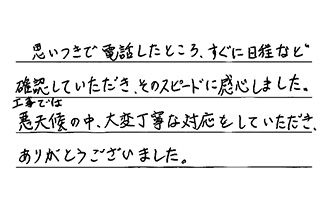 思いつきで電話したところ、すぐに日程など
確認していただき、そのスピードに感心しました。
工事では
悪天候の中、大変丁寧な対応をしていただき、
ありがとうございました。